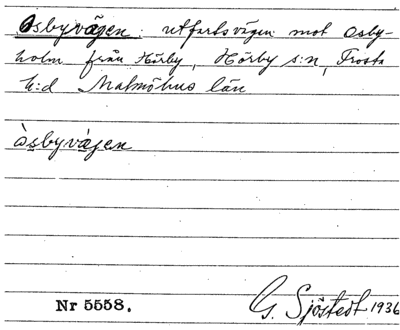 Osbyvägen: utfartsvägen mot Osby-
holm från Hörby, Hörby s:n, Frosta
h:d Malmöhus län
òsbyvä̀gen
Nr 5558.
G. Sjöstedt 1936